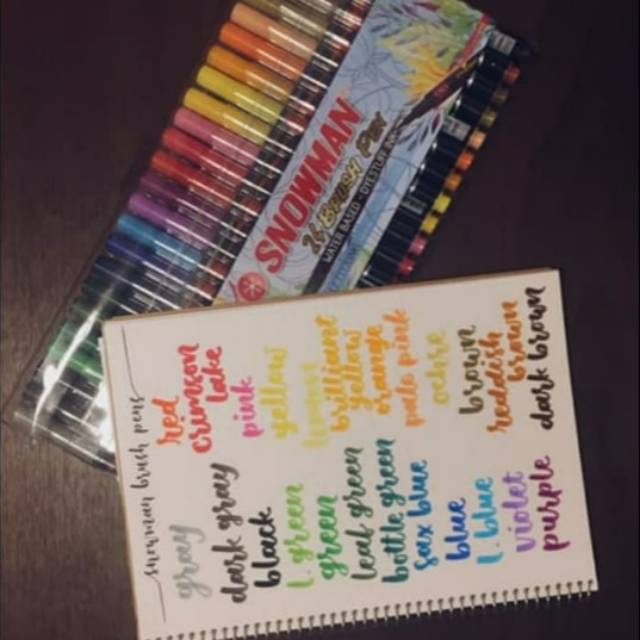 SNOWMAN
24 Brush Pen
WATER BASED
snowman brush pens
red
crimson
lake
pink
yellow
lemon
brilliant
yellow
orange
pale pink
ochre
brown
reddish
brown
dark brown
gray
dark gray
black
l. green
green
leaf green
bottle green
sax blue
blue
l. blue
violet
purple